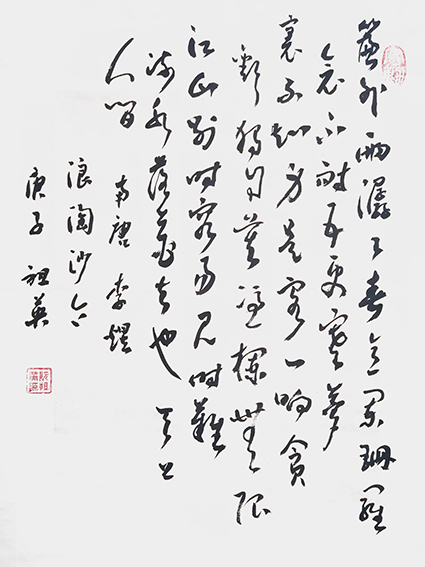 簾外雨潺々春意闌珊羅
衾不耐五更寒夢
裏不知身是客一响貪
歡獨自莫憑欄無限
江山别時容易見時難
流水落花去也天上
人間
南唐李煜
浪淘沙令
庚子祖